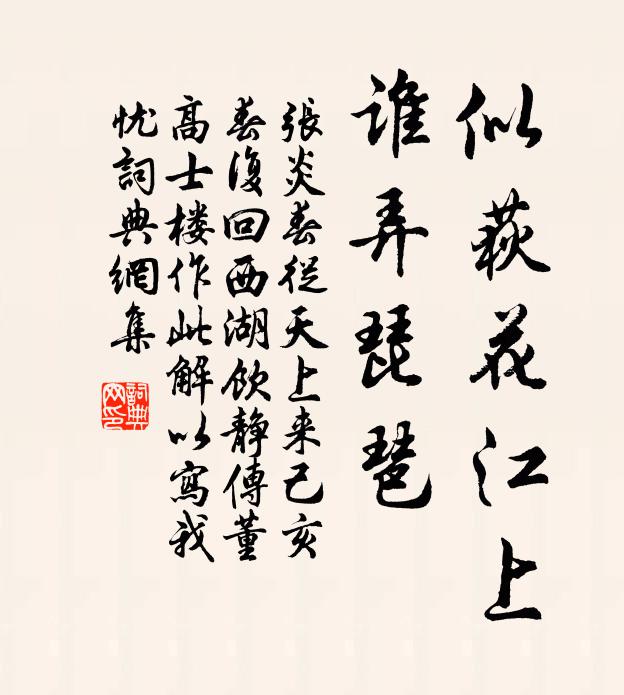 似荻花江上
谁弄琵琶
張炎春從天上来己亥
春復回西湖飲静傳董
高士楼作此解以寫我
忱詞典網集
詞典网印